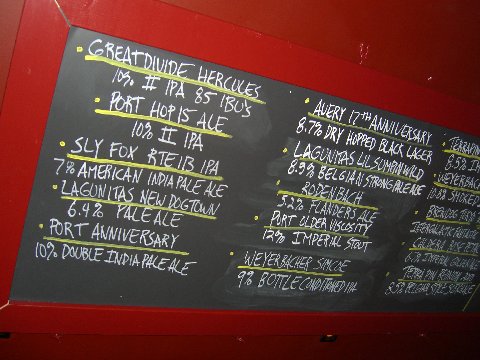 GREAT DIVIDE HERCULES
10% II IPA 85 IBU'S
• PORT HOP 15 ALE
10% II IPA
• SLY FOX RTE 113 IPA
7% AMERICAN INDIA PALE ALE
• LAGUNITAS NEW DOGTOWN
6.4% PALE ALE
• PORT ANNIVERSARY
10% DOUBLE INDIA PALE ALE
• AVERY 17TH ANNIVERSARY
8.7% DRY HOPPED BLACK LAGER
• LAGUNITAS LIL SUMPIN WILD
8.9% BELGIAN STRONG PALE ALE
• RODENBACH
5.2% FLANDERS ALE
• PORT OLDER VISCOSITY
12% IMPERIAL STOUT
• WEYERBACHER SIMCOE
9% BOTTLE CONDITIONED IPA
• TERRAPIN
WEYERBACH
SMOKED